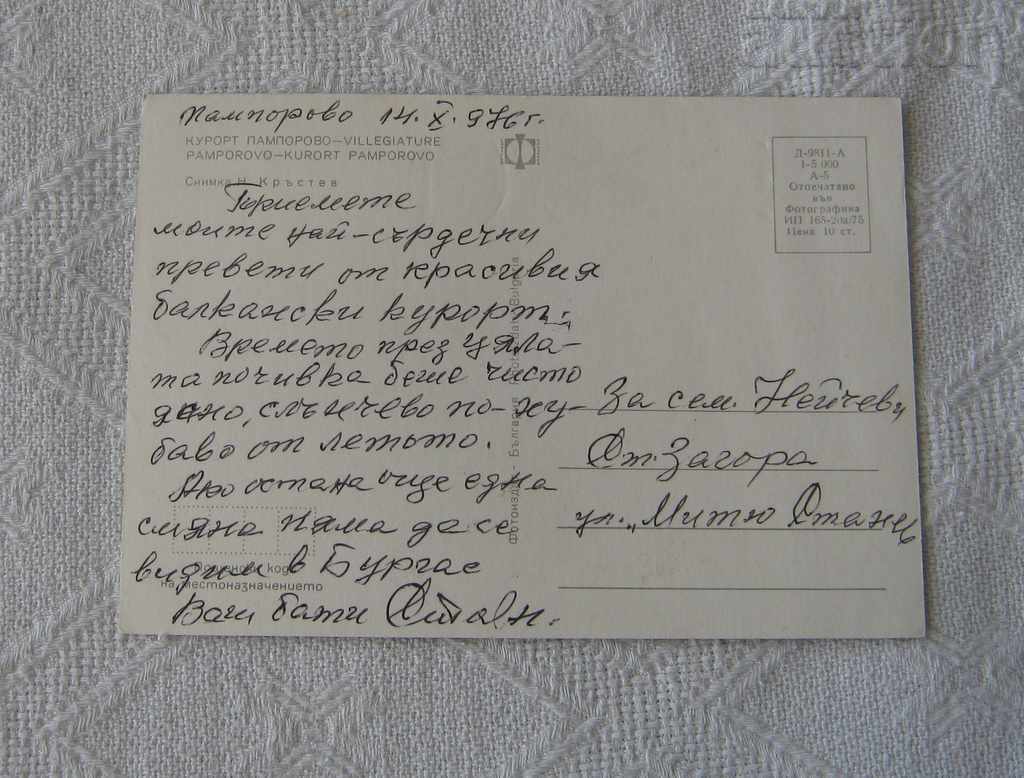 Пампорово 14.X.976г.
КУРОРТ ПАМПОРОВО—VILLEGIATURE
PAMPOROVO—KURORT PAMPOROVO
Снимка Н. Кръстев
Приемете
моите най-сърдечни
превети от красивия
балкански курорт.
Времето през цяла-
та почивка беше чисто
ясно, слънчево по-ху-
баво от летьто.
Ако остана още една
смяна няма да се
видим в Бургас
Ваш бати
Д-9811-А
1-5 000
А-5
Отпечатано
във
Фотографика
ИП 165-20а/75
Цена 10 ст.
За сем. Нейчеви
Ст. Загора
ул. „Митю Станев
Фотоиздат - България
Bulgaria
Пощенски код
на местоназначението